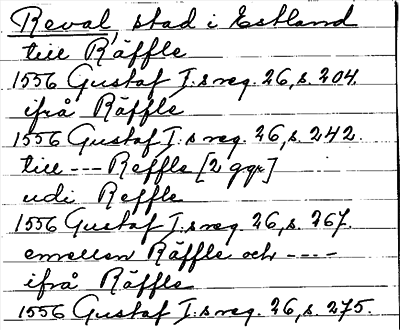 Reval, stad i Estland
till Räffle
1556 Gustaf I:s reg. 26, s. 204.
ifrå Räffle
1556 Gustaf I:s reg. 26, s. 242.
till --- Reffle [2 ggr]
udi Reffle
1556 Gustaf I:s reg. 26, s. 267.
emellen Räffle och ----
ifrå Räffle
1556 Gustaf I:s reg. 26, s. 275.